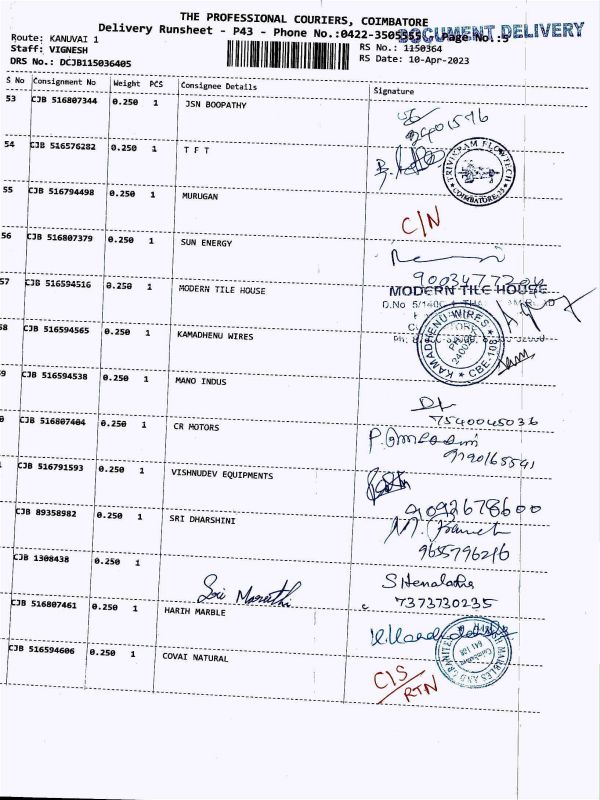 THE PROFESSIONAL COURIERS, COIMBATORE
Delivery Runsheet - P43 - Phone No.:0422-3505355 Page No.:5
DOCUMENT DELIVERY
Route: KANUVAI 1
RS No.: 1150364
Staff: VIGNESH
RS Date: 10-Apr-2023
DRS No.: DCJB115036405
S No Consignment No Weight PCS Consignee Details Signature
53 CJB 516807344 0.250 1 JSN BOOPATHY
54 CJB 516576282 0.250 1 T F T
TRIVIKRAM FLOWTECH COIMBATORE
55 CJB 516794498 0.250 1 MURUGAN C/N
56 CJB 516807379 0.250 1 SUN ENERGY
57 CJB 516594516 0.250 1 MODERN TILE HOUSE
MODERN TILE HOUSE
D.No
58 CJB 516594565 0.250 1 KAMADHENU WIRES
KAMADHENU WIRES CBE-108
9 CJB 516594538 0.250 1 MANO INDUS
7540045036
0 CJB 516807404 0.250 1 CR MOTORS
9790165541
CJB 516791593 0.250 1 VISHNUDEV EQUIPMENTS
9092678600
CJB 89358982 0.250 1 SRI DHARSHINI
9655796216
CJB 1308438 0.250 1 Sri Maruthi S Henalatha
7373730235
CJB 516807461 0.250 1 HARIH MARBLE
CJB 516594606 0.250 1 COVAI NATURAL C/S
RTN